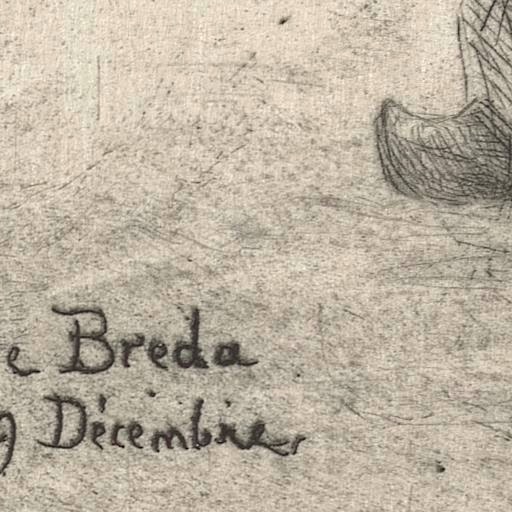 e Breda
9 Décembre,